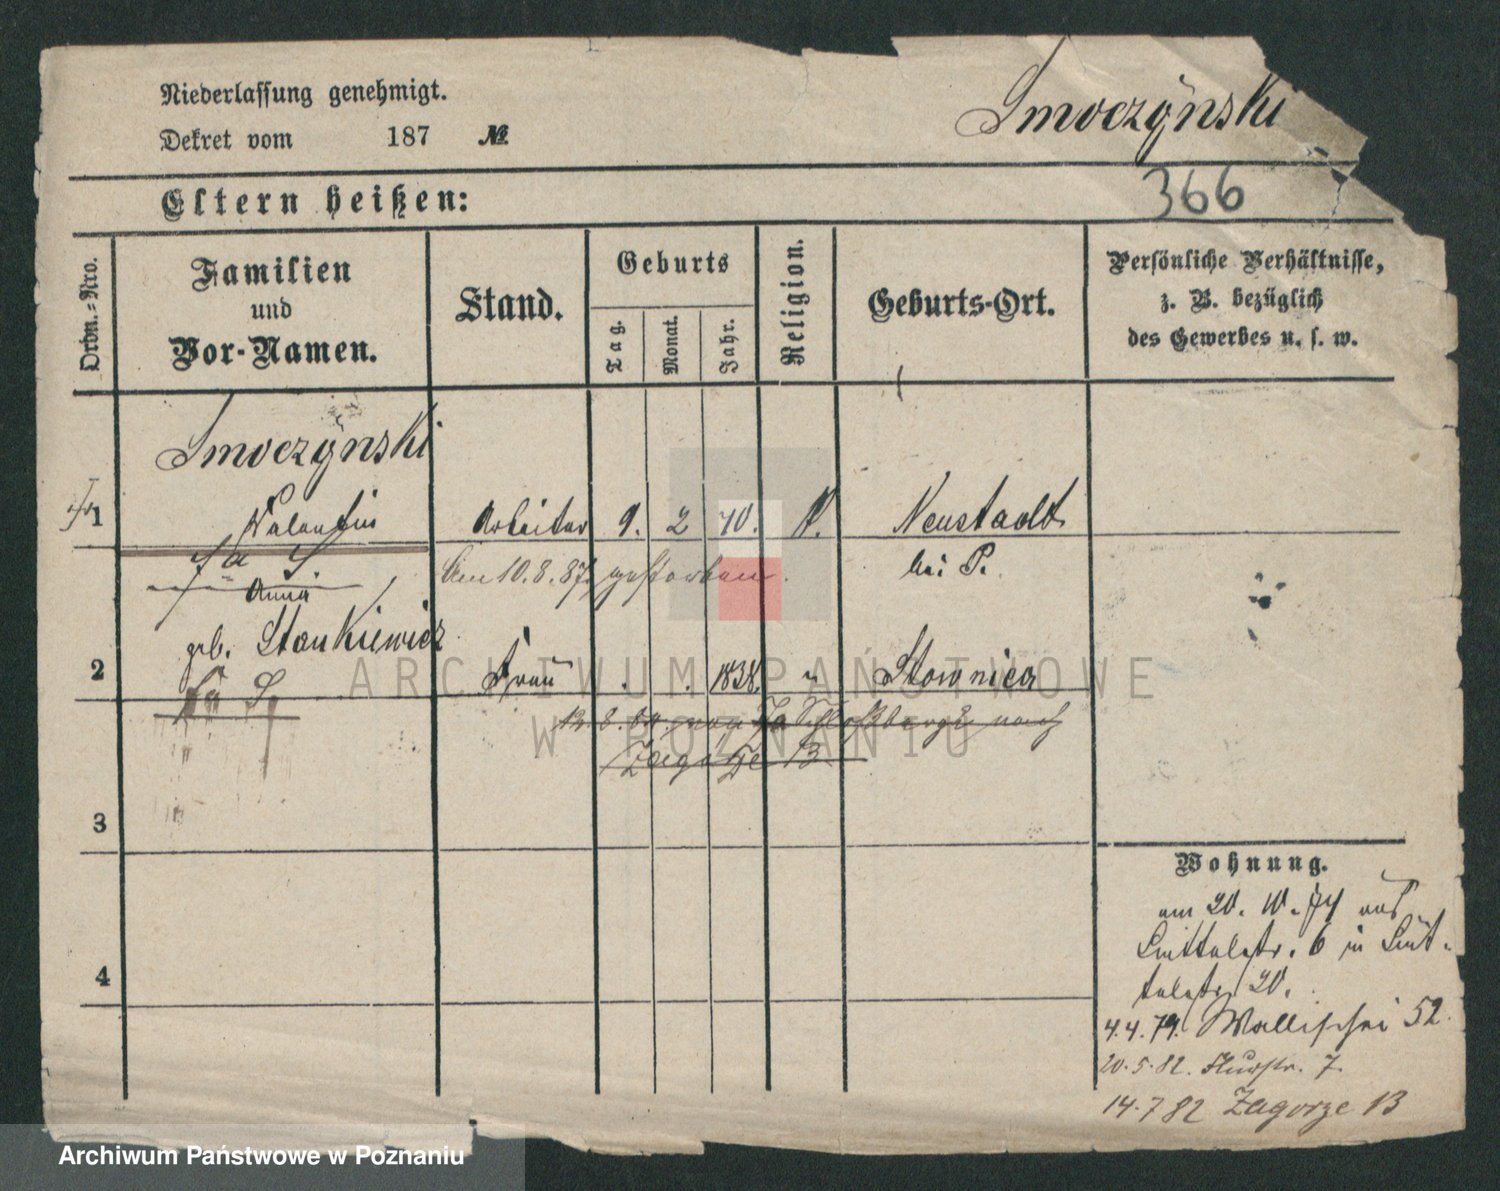 Niederlassung genehmigt.
Smoczynski
Dekret vom 187 №
366
Eltern heißen:
Ordn.-Nro.
Familien
und
Vor-Namen.
Stand.
Geburts
Tag.
Monat.
Jahr.
Religion.
Geburts-Ort.
Persönliche Verhältnisse,
z. B. bezüglich
des Gewerbes u. s. w.
Smoczynski
1 Valentin Arbeiter 9. 2 40. K. Neustadt
Am 10.8.87. gestorben. bei P.
Anna
geb. Stankiewicz
2 Frau 1838. " Slownica
12.8.84 von Schloßberg nach
Zagorze 13
3
4
Wohnung.
am 20. 10. 74 aus
6 in
20.
4.4.79. Wallischei 52.
20.5.82. Flurstr. 7.
14.7 82 Zagorze 13
ARCHIWUM PAŃSTWOWE
W POZNANIU
Archiwum Państwowe w Poznaniu